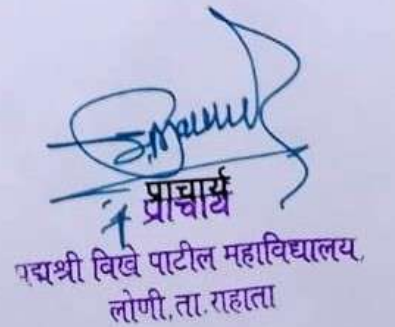 प्राचार्य
प्राचार्य
पद्मश्री विखे पाटील महाविद्यालय,
लोणी,ता.राहाता